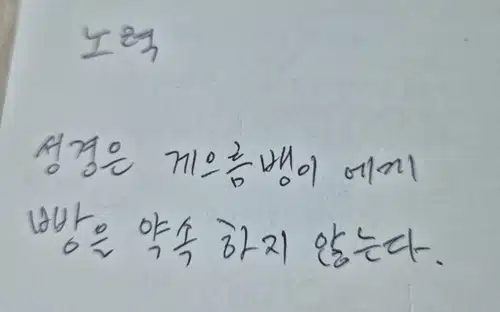 노력
성경은 게으름뱅이 에게
빵을 약속 하지 않는다.